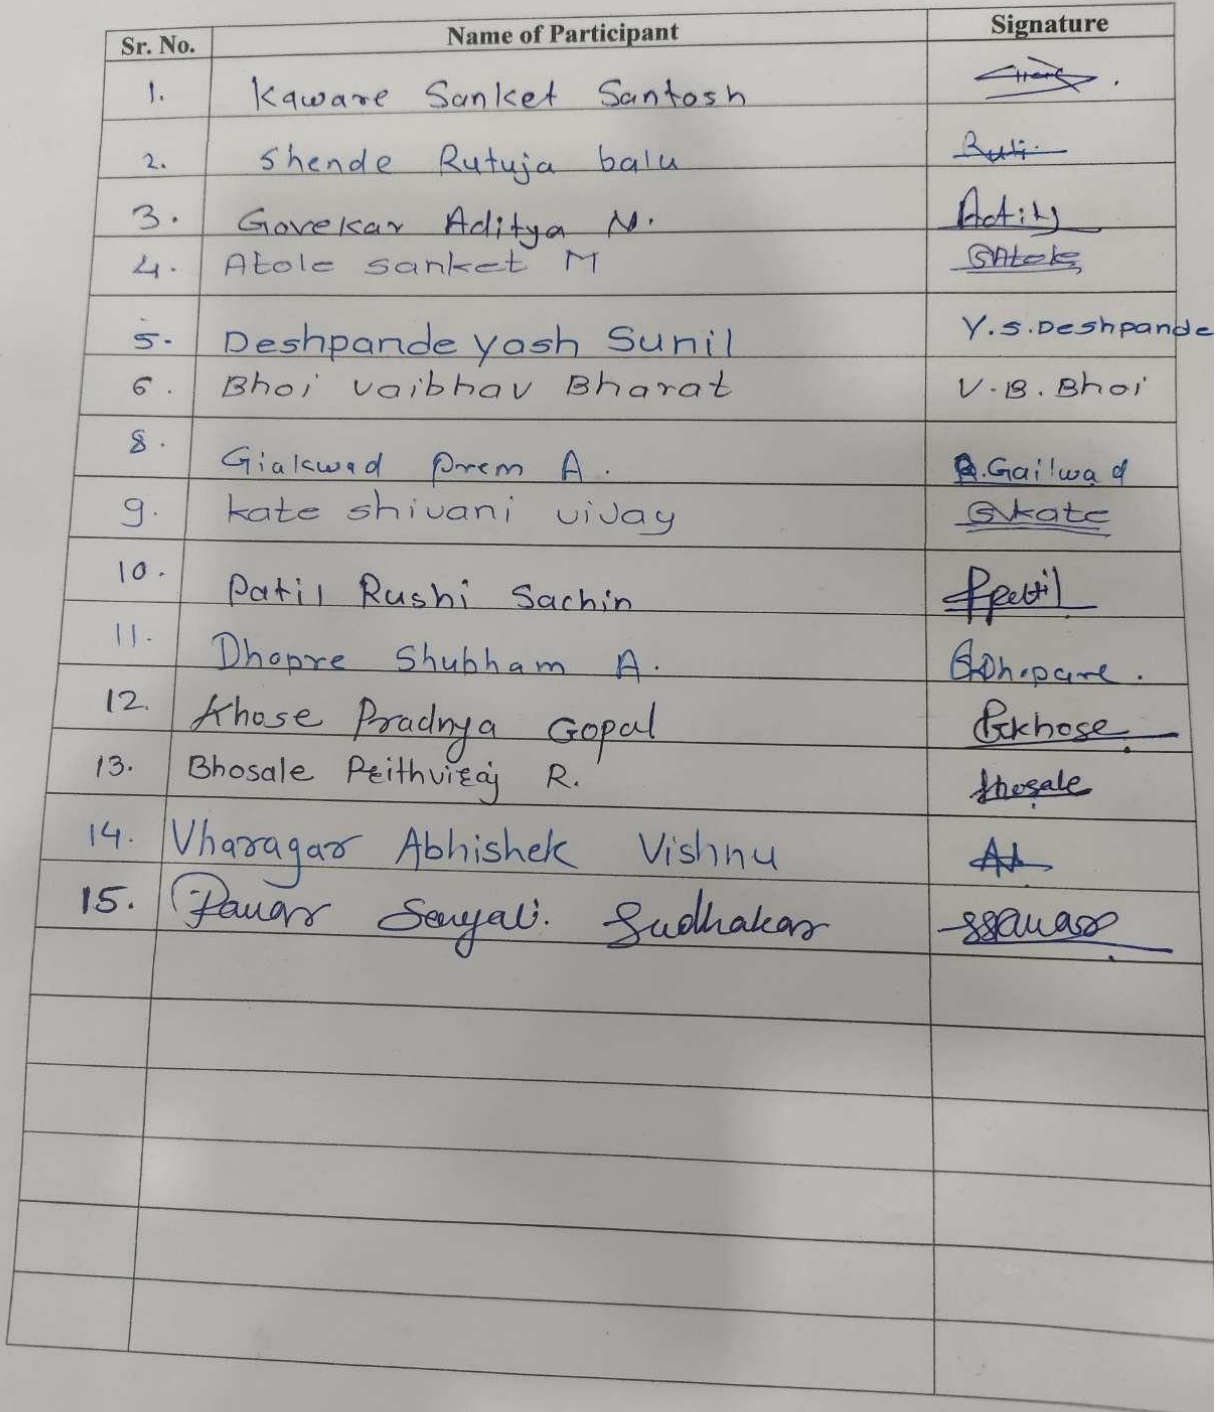 Sr. No. Name of Participant Signature
1. Kaware Sanket Santosh
2. Shende Rutuja balu Ruti
3. Govekar Aditya N. Aditya
4. Atole sanket M SAtole
5. Deshpande yash Sunil Y.S.Deshpande
6. Bhoi vaibhav Bharat V.B.Bhoi
8. Giakwad Prem A. Gailwad
9. kate shivani vijay Svkate
10. Patil Rushi Sachin Patil
11. Dhopre Shubham A. Dhopare.
12. Khose Pradnya Gopal Pgkhose
13. Bhosale Prithviraj R. Bhosale
14. Vharagar Abhishek Vishnu
15. Pawar Sudhakar